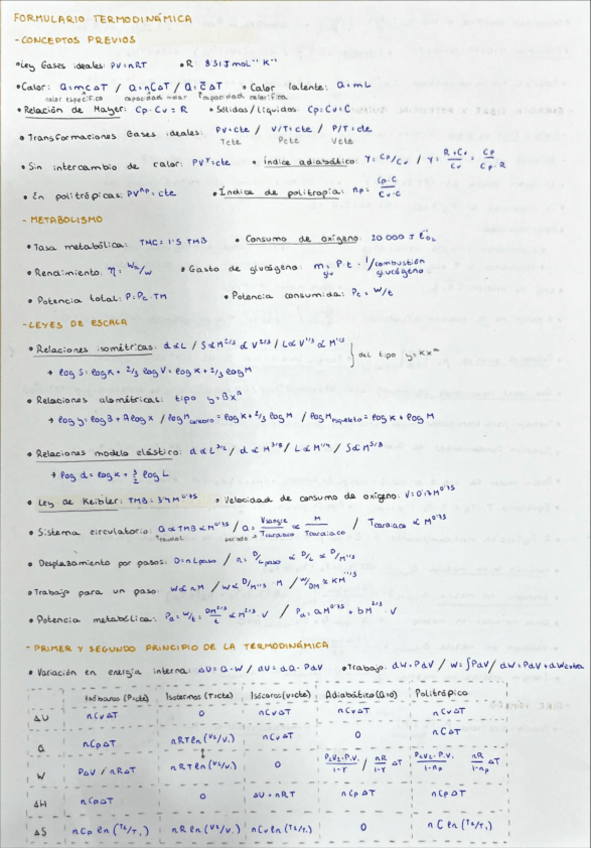 FORMULARIO TERMODINÁMICA
- CONCEPTOS PREVIOS
• Ley Gases ideales: PV=nRT • R: 8'31 J mol⁻¹ K⁻¹
• Calor: Q=mcΔT / Q=nCΔT / Q=C̄ΔT • Calor latente: Q=mL
calor específico capacidad molar capacidad calorífica
• Relación de Mayer: Cp-Cv=R • Sólidos/líquidos: Cp=Cv=C
• Transformaciones Gases ideales: PV=cte / V/T=cte / P/T=cte
Tcte Pcte Vcte
• Sin intercambio de calor: PV^γ=cte • Índice adiabático: γ=Cp/Cv / γ= (R+Cv)/Cv = Cp/(Cp-R)
• En politrópicas: PV^np=cte • Índice de politropía: np= (Cp-C)/(Cv-C)
- METABOLISMO
• Tasa metabólica: TMC=1'5 TMB • Consumo de oxígeno: 20000 J L⁻¹O₂
• Rendimiento: η= /W • Gasto de glucógeno: m glu = P·t · 1/combustión glucógeno
• Potencia total: P=Pc+TM • Potencia consumida: Pc=W/t
- LEYES DE ESCALA
• Relaciones isométricas: d∝L / S∝M^2/3 ∝V^2/3 / L∝V^1/3 ∝M^1/3 } del tipo y=Kx^a
→ log S=logK+2/3 logV=logK+2/3 logM
• Relaciones alométricas: tipo y=Bx^a
→ log y=logB+Alogx / logM cerebro=logK+2/3 logM / logM esqueleto=logK+logM
• Relaciones modelo elástico: d∝L^3/2 / d∝M^3/8 / L∝M^1/4 / S∝M^5/8
→ log d=logK+3/2 logL
• Ley de Keibler: TMB=3'4M^0'75 • Velocidad de consumo de oxígeno: V=0'17M^0'75
• Sistema circulatorio: Q∝TMB∝M^0'75 / Q= Vsangre/Tcardiaco ∝ M/Tcardiaco / Tcardiaco ∝M^0'25
caudal periodo
• Desplazamiento por pasos: D=nLpaso / n=D/Lpaso ∝D/L∝D/M^1/3
• Trabajo para un paso: W∝nM / W∝D/M^1/3 · M / W/DM ∝KM^-1/3
• Potencia metabólica: Pa=W/t= DM^2/3/t ∝M^2/3·V / Pa=aM^0'75+bM^2/3·V
- PRIMER Y SEGUNDO PRINCIPIO DE LA TERMODINÁMICA
• Variación en energía interna: ΔU=Q-W / dU=dQ-PdV • Trabajo: dW=PdV / W=∫PdV / dW=PdV+dWextra
Isóbaros (P=cte) Isotermos (T=cte) Isócoros (v=cte) Adiabático (Q=0) Politrópico
ΔU nCvΔT 0 nCvΔT nCvΔT nCvΔT
Q nCpΔT nRTln(V₂/V₁) nCvΔT 0 nCΔT
W PΔV / nRΔT nRTln(V₂/V₁) 0 (P₂V₂-P₁V₁)/(1-γ) / nR/(1-γ) ΔT (P₂V₂-P₁V₁)/(1-np) nR/(1-np) ΔT
ΔH nCpΔT 0 ΔU+nRT nCpΔT nCpΔT
ΔS nCp ln(T₂/T₁) nR ln(V₂/V₁) nCv ln(T₂/T₁) 0 nC ln(T₂/T₁)